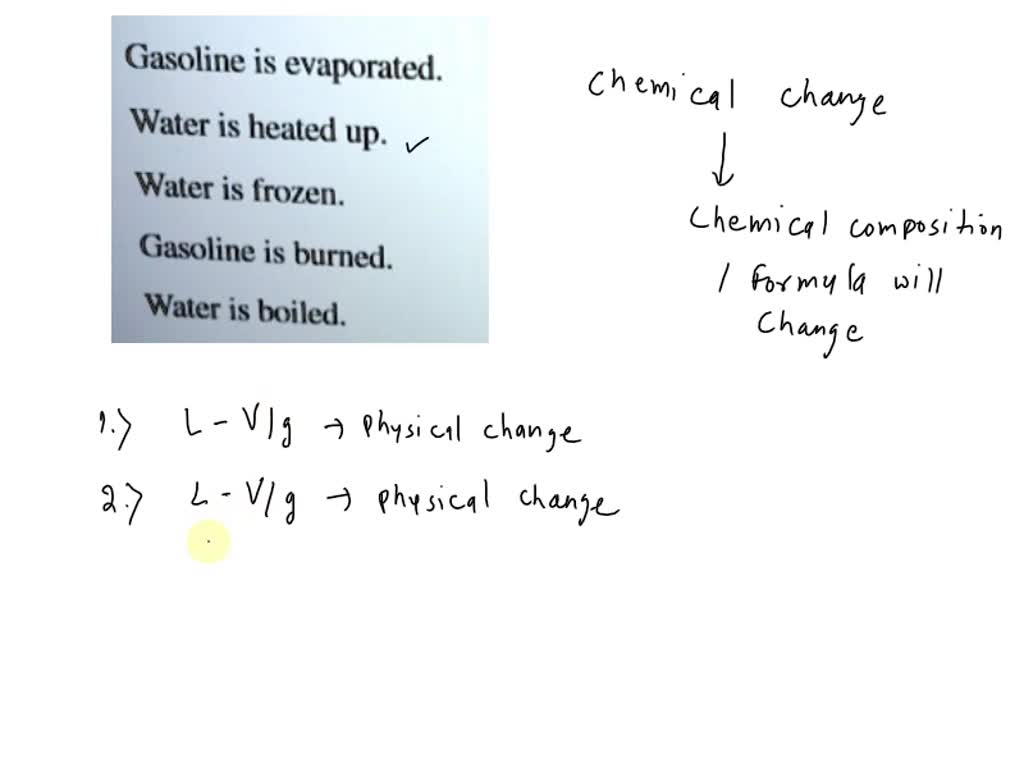 Gasoline is evaporated.
Water is heated up. ✓
Water is frozen.
Gasoline is burned.
Water is boiled.
Chemical change
↓
Chemical composition
/ formula will
change
1.) L - V/g → physical change
2.) L - V/g → physical change